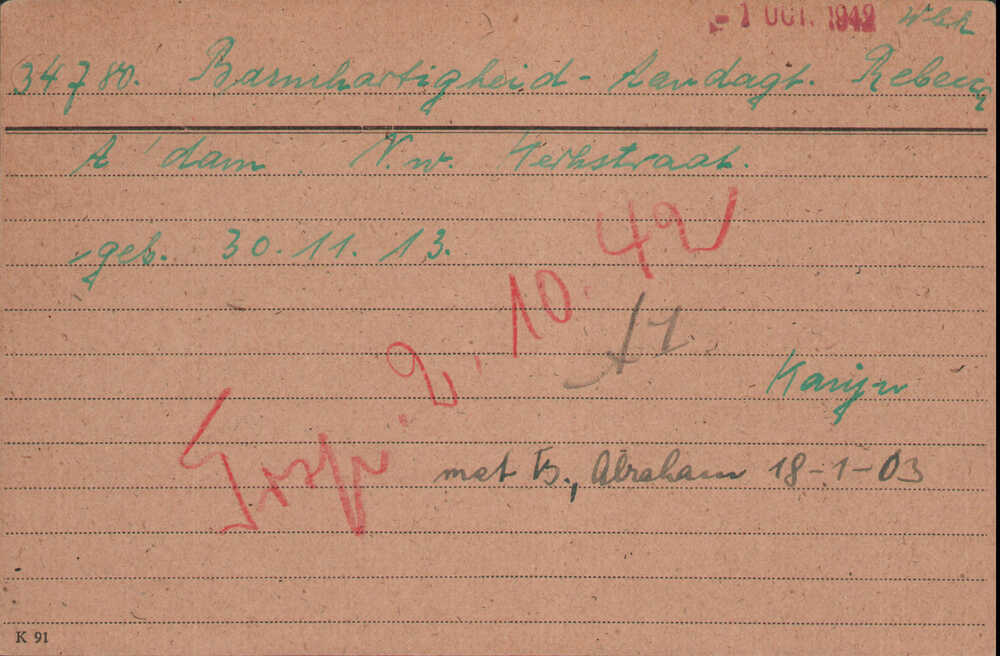 - 1 OCT. 1942 Wbk
34780. Barmhartigheid - Aandagt. Rebecca
A'dam N.w. Kerkstraat.
geb. 30.11.13.
Trsp. 2.10.42
met B., Abraham 18-1-03
K 91